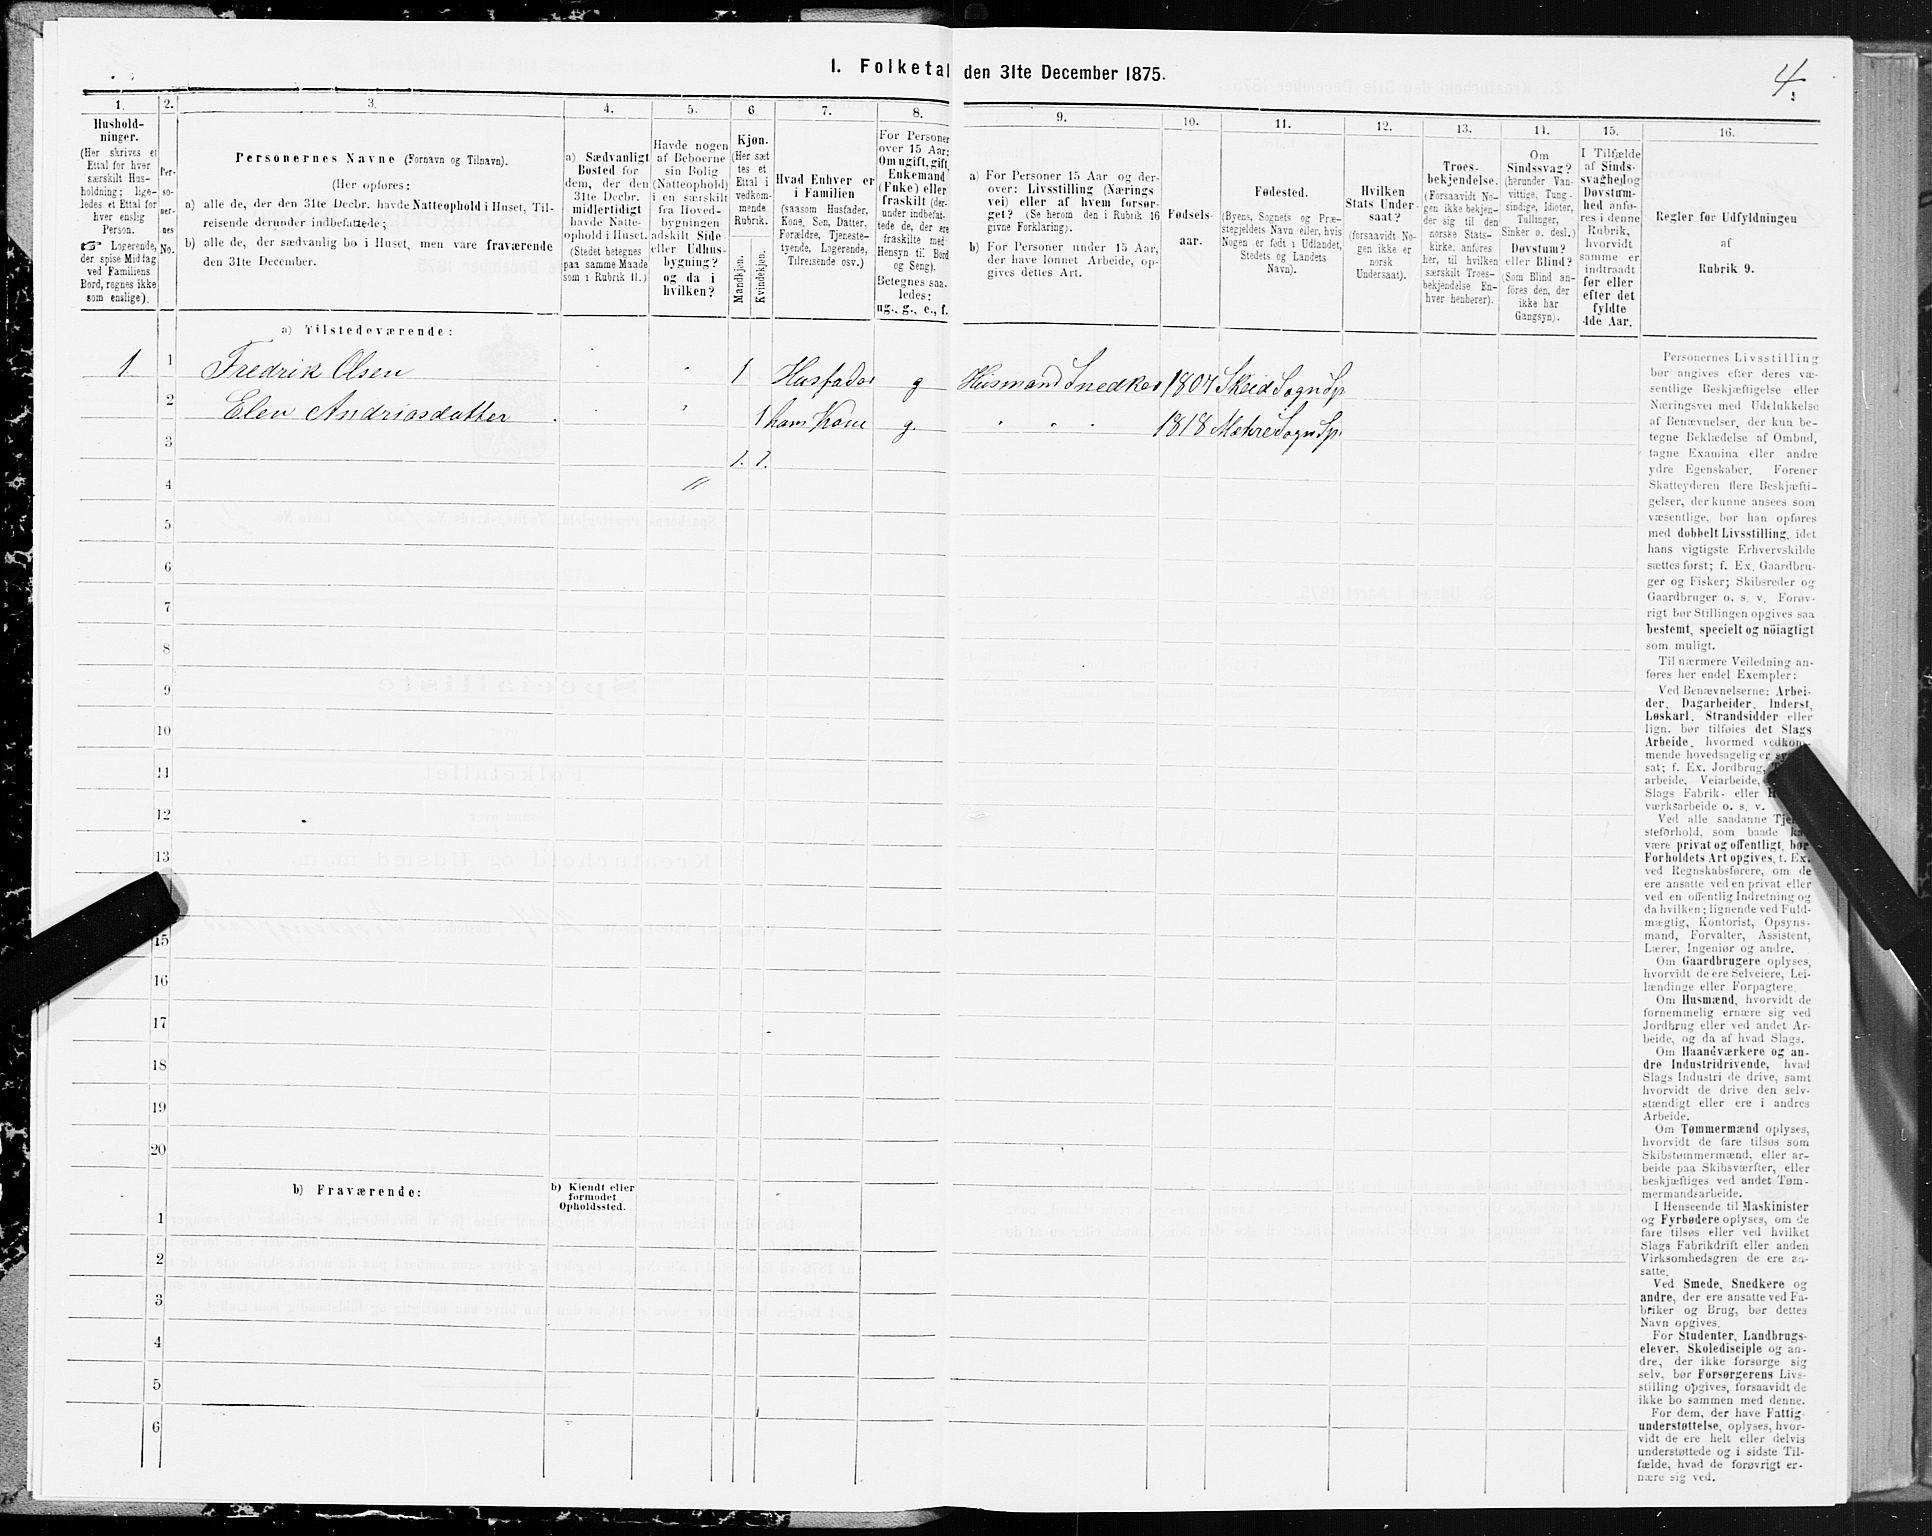 I. Folketal den 31te December 1875.
4.
1.
2.
3.
4.
5.
6.
7.
8.
9.
10.
11.
12.
13.
14.
15.
16.
Hushold-
ninger.
(Her skrives et
Ettal for hver
særskilt Hus-
holdning; lige-
ledes et Ettal for
hver enslig
Person.
☞ Logerende,
der spise Middag
ved Familiens
Bord, regnes ikke
som enslige).
Per-
so-
ner-
nes
No.
Personernes Navne (Fornavn og Tilnavn).
(Her opføres:
a) alle de, der den 31te Decbr. havde Natteophold i Huset, Til-
reisende derunder indbefattede;
b) alle de, der sædvanlig bo i Huset, men vare fraværende
den 31te December.
a) Sædvanligt
Bosted for
dem, der den
31te Decbr.
midlertidigt
havde Natte-
ophold i Huset.
(Stedet betegnes
paa samme Maade
som i Rubrik 11.)
Havde nogen
af Beboerne
sin Bolig
(Natteophold)
i en særskilt
fra Hoved-
bygningen
adskilt Side-
eller Udhus-
bygning?
og da i
hvilken?
Kjøn.
(Her sæt
tes et
Ettal i
vedkom-
mende
Rubrik.
Mandkjøn.
Kvindekjøn.
Hvad Enhver er
i Familien
(saasom Husfader,
Kone, Søn, Datter,
Forældre, Tjeneste-
tyende, Logerende,
Tilreisende osv.)
For Personer
over 15 Aar:
Om ugift, gift,
Enkemand
(Enke) eller
fraskilt (der-
under indbefat-
tede de, der ere
fraskilte med
Hensyn til Bord
og Seng).
Betegnes saa-
ledes:
ug., g., e., f.
a) For Personer 15 Aar og der-
over: Livsstilling (Nærings
vei) eller af hvem forsør-
get? (Se herom den i Rubrik 16
givne Forklaring).
b) For Personer under 15 Aar,
der have lønnet Arbeide, op-
gives dettes Art.
Fødsels-
aar.
Fødested.
(Byens, Sognets og Præ-
stegjeldets Navn eller, hvis
Nogen er født i Udlandet,
Stedets og Landets
Navn).
Hvilken
Stats Under-
saat?
(forsaavidt No-
gen ikke er
norsk
Undersaat).
Troes-
bekjendelse.
(Forsaavidt No-
gen ikke bekjen-
der sig til den
norske Stats-
kirke, anføres
her, til hvilken
særskilt Troes-
bekjendelse En-
hver henhører).
Om
Sindssvag?
(herunder Van-
vittige, Tung-
sindige, Idioter,
Tullinger,
Sinker o. desl.)
Døvstum?
eller Blind?
(Som Blind an-
føres den, der
ikke har
Gangsyn).
I Tilfælde
af Sinds-
svaghed og
Døvstum-
hed anfø-
res i denne
Rubrik,
hvorvidt
samme er
indtraadt
før eller
efter det
fyldte
4de Aar.
Regler før Udfyldningen
af
Rubrik 9.
a) Tilstedeværende:
1 1 Fredrik Olsen " 1 Husfader g Husmand Snedker 1807 Skeid Sogn Sp
2 Elen Andriasdatter " 1 hans Kone g. " " " 1818 Mæhre Sogn Sp.
3 1. 1.
4 "
5
6
7
8
9
10
11
12
13
15
16
17
18
19
20
b) Fraværende:
b) Kiendt eller
formodet
Opholdssted.
1
2
3
4
5
6
Personernes Livsstilling
bør angives efter deres væ-
sentlige Beskjæftigelse eller
Næringsvei med Udelukkelse
af Benævnelser, der kun be-
tegne Beklædelse af Ombud,
tagne Examina eller andre
ydre Egenskaber. Forener
Skatteyderen flere Beskjæfti-
gelser, der kunne ansees som
væsentlige, bør han opføres
med dobbelt Livsstilling, idet
hans vigtigste Erhvervskilde
sættes først; f. Ex. Gaardbru-
ger og Fisker; Skibsreder og
Gaardbruger o. s. v. Forøv-
rigt bør Stillingen opgives saa
bestemt, specielt og nöiagtigt
som muligt.
Til nærmere Veiledning an-
føres her endel Exempler:
Ved Benævnelserne: Arbei-
der, Dagarbeider, Inderst,
Løskarl, Strandsidder eller
lign. bør tilføies det Slags
Arbeide, hvormed vedkom-
mende hovedsagelig er sys
sat; f. Ex. Jordbrug,
arbeide, Veiarbeide,
Slags Fabrik- eller
værksarbeide o. s. v.
Ved alle saadanne Tje
steforhold, som baade
være privat og offentligt, bør
Forholdets Art opgives, f. Ex.
ved Regnskabsførere, om de
ere ansatte ved en privat eller
ved en offentlig Indretning og
da hvilken; lignende ved Fuld-
mægtig, Kontorist, Opsyns-
mand, Forvalter, Assistent,
Lærer, Ingeniør og andre.
Om Gaardbrugere oplyses,
hvorvidt de ere Selveiere, Lei-
lændinge eller Forpagtere.
Om Husmænd, hvorvidt de
fornemmelig ernære sig ved
Jordbrug eller ved andet Ar-
beide, og da af hvad Slags.
Om Haandværkere og an-
dre Industridrivende, hvad
Slags Industri de drive, samt
hvorvidt de drive den selv-
stændigt eller ere i andres
Arbeide.
Om Tømmermænd oplyses,
hvorvidt de fare tilsøs som
Skibstømmermænd, eller ar-
beide paa Skibsværfter, eller
beskjæftiges ved andet Tøm-
mermandsarbeide.
I Henseende til Maskinister
og Fyrbødere oplyses, om de
fare tilsøs eller ved hvilket
Slags Fabrikdrift eller anden
Virksomhedsgren de ere an-
satte.
Ved Smede, Snedkere og
andre, der ere ansatte ved Fa-
briker og Brug, bør dettes
Navn opgives.
For Studenter, Landbrugs-
elever, Skoledisciple og an-
dre, der ikke forsørge sig
selv, bør Forsørgerens Livs-
stilling opgives, forsaavidt de
ikke bo sammen med denne.
For dem, der have Fattig-
understøttelse, oplyses, hvor-
vidt de ere helt eller delvis
understøttede og i sidste Til-
fælde, hvad de forøvrigt er-
nære sig ved.